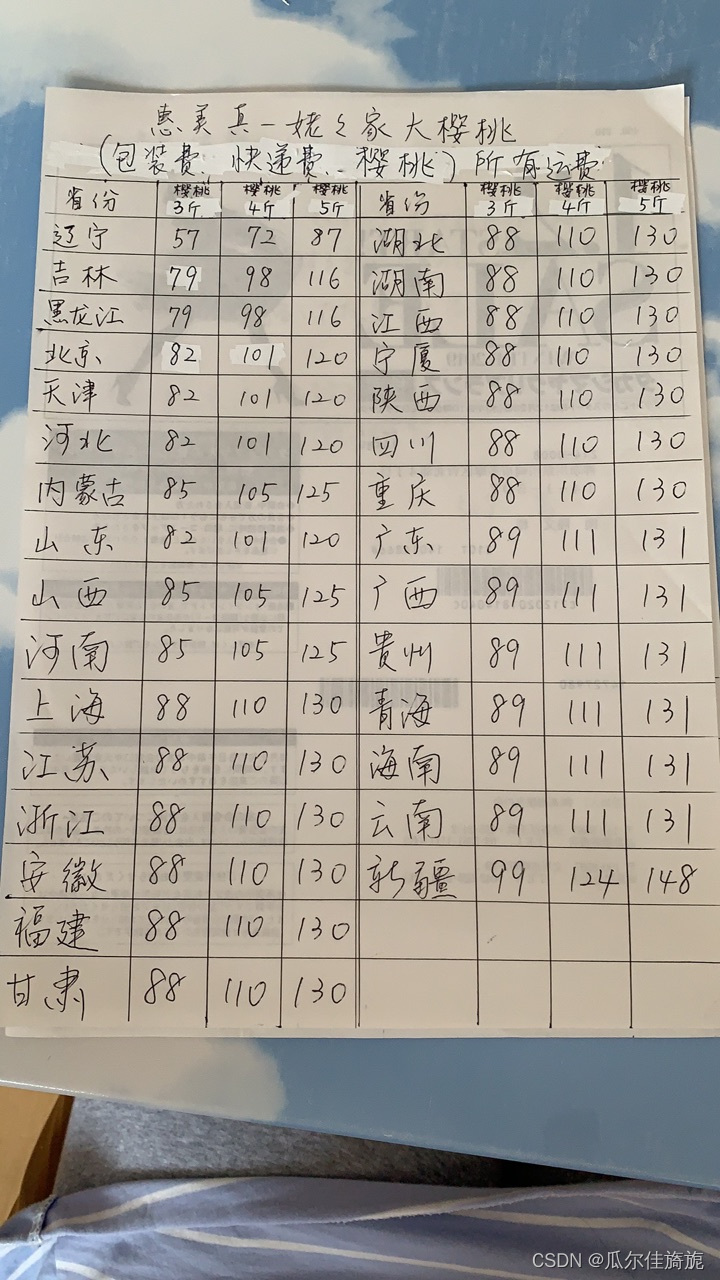 惠美真一姥々家大樱桃
(包装费、快递费、樱桃)所有运费
省份 樱桃3斤 樱桃4斤 樱桃5斤 省份 樱桃3斤 樱桃4斤 樱桃5斤
辽宁 57 72 87 湖北 88 110 130
吉林 79 98 116 湖南 88 110 130
黑龙江 79 98 116 江西 88 110 130
北京 82 101 120 宁厦 88 110 130
天津 82 101 120 陕西 88 110 130
河北 82 101 120 四川 88 110 130
内蒙古 85 105 125 重庆 88 110 130
山东 82 101 120 广东 89 111 131
山西 85 105 125 广西 89 111 131
河南 85 105 125 貴州 89 111 131
上海 88 110 130 青海 89 111 131
江苏 88 110 130 海南 89 111 131
浙江 88 110 130 云南 89 111 131
安徽 88 110 130 新疆 99 124 148
福建 88 110 130
甘肃 88 110 130
CSDN @瓜尔佳旖旎